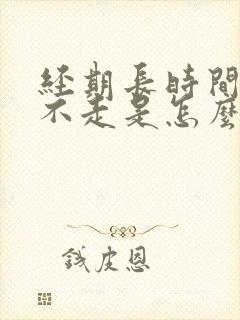 經期長時間
不走是怎麼
錢皮恩